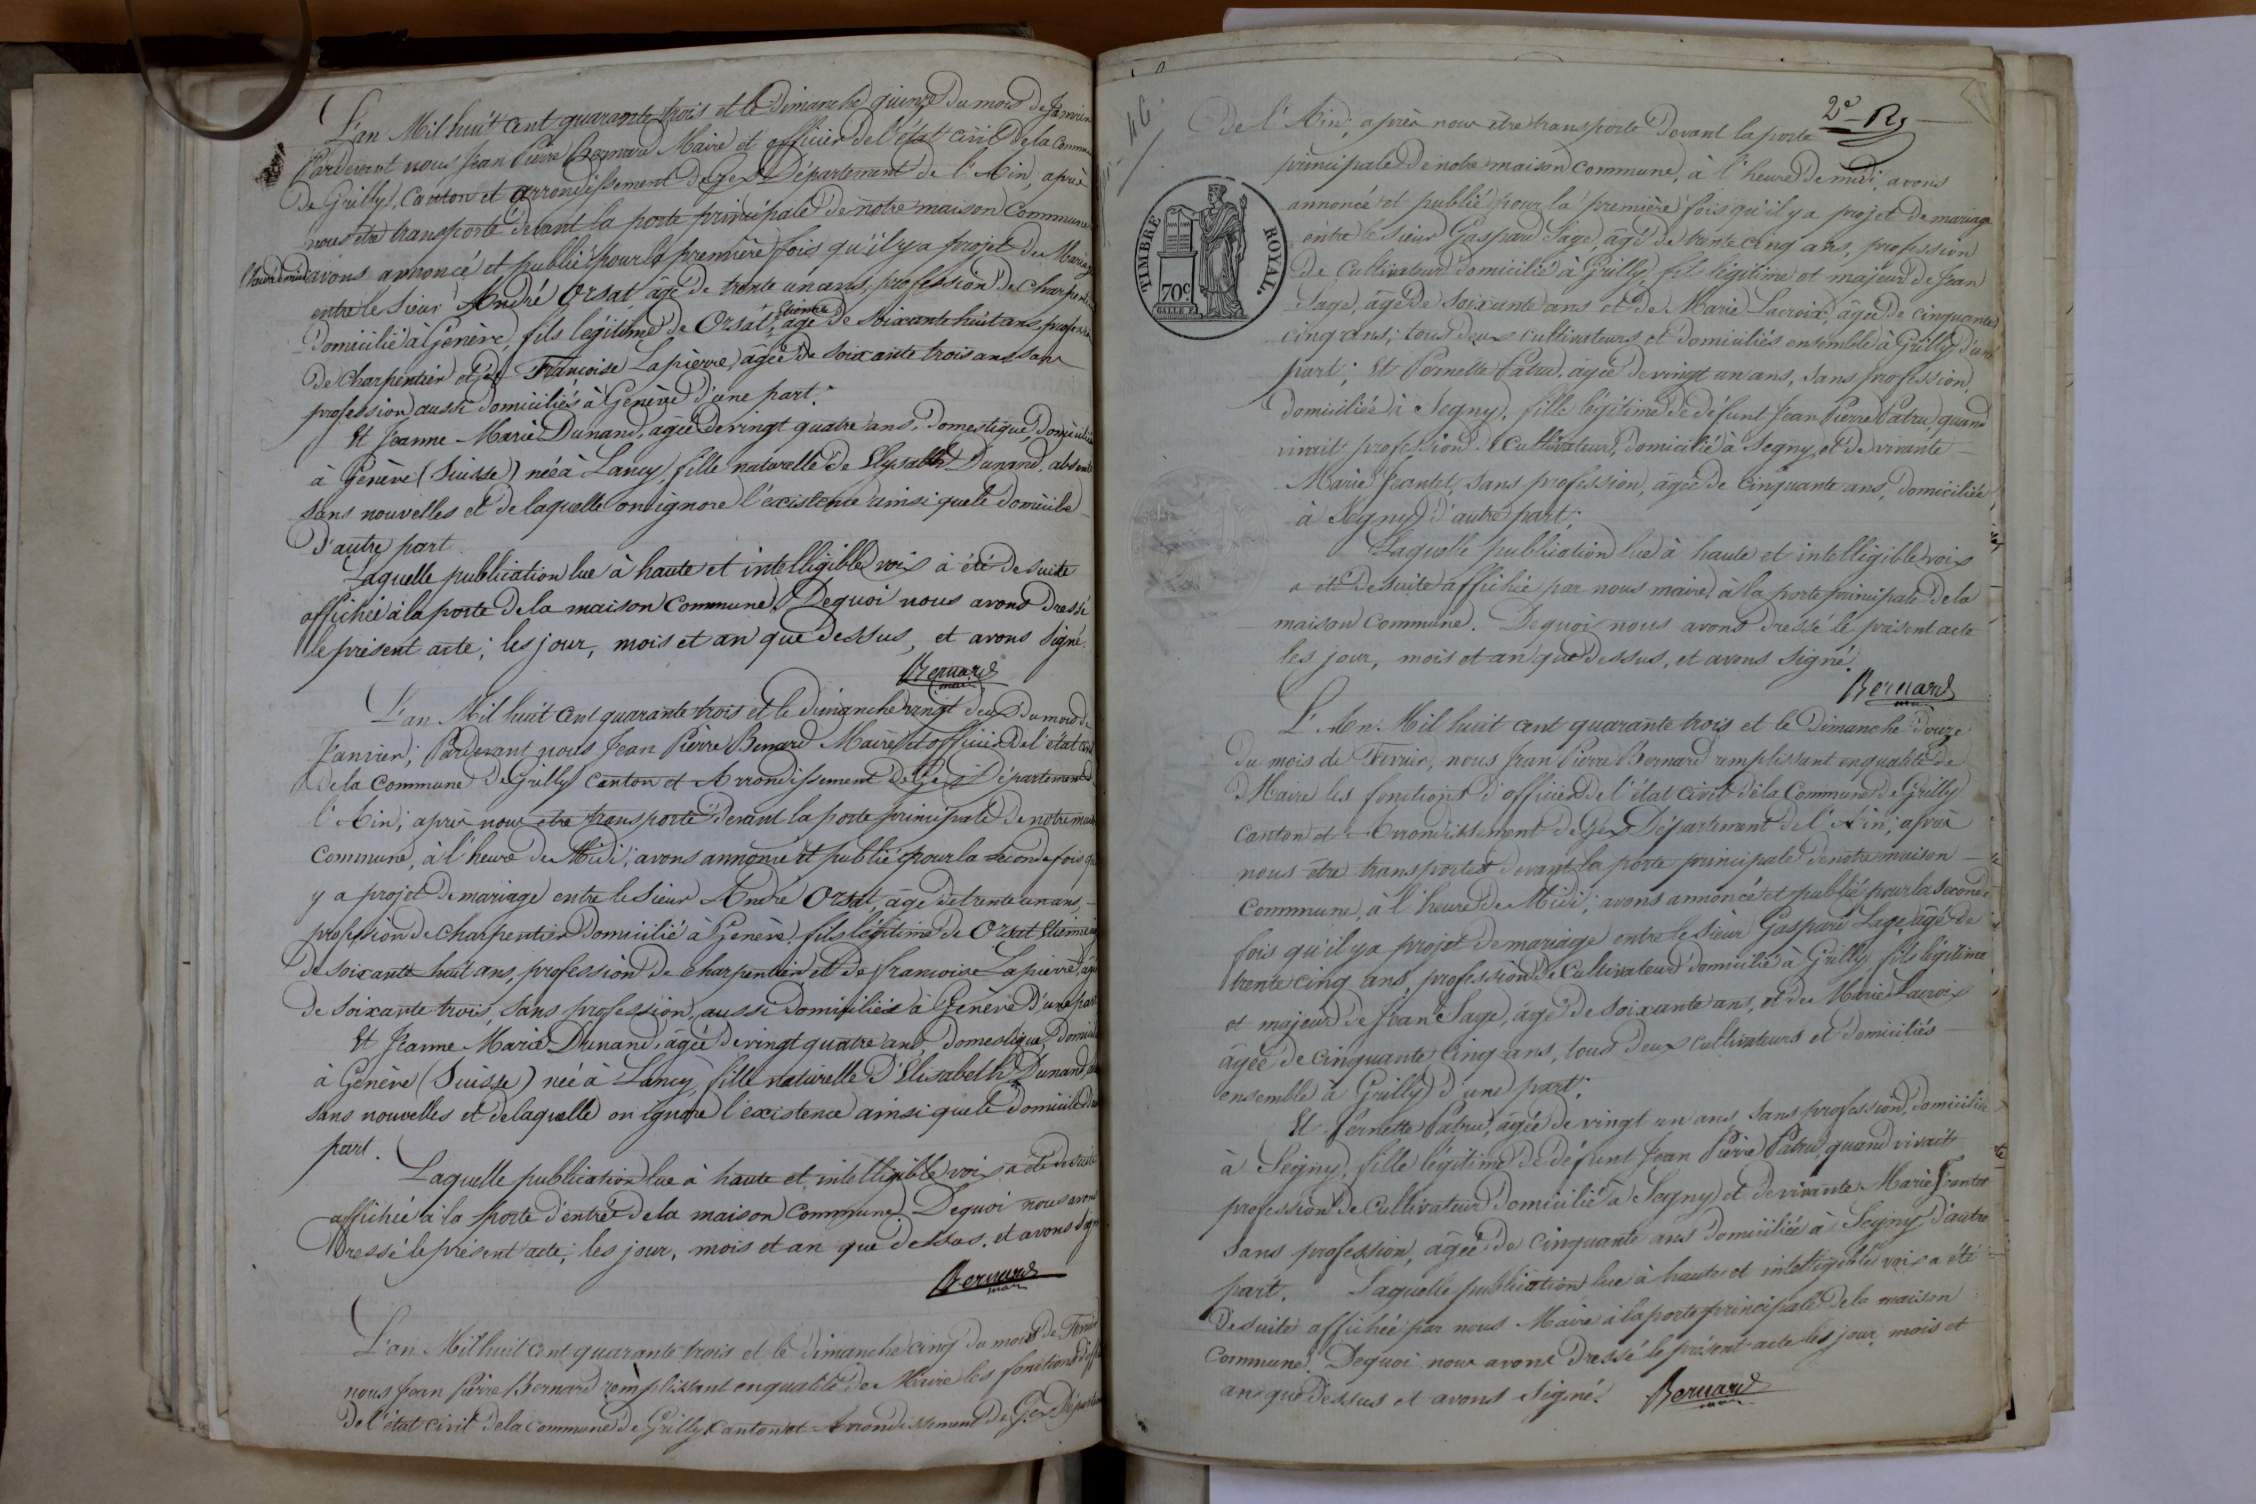 L'an Mil huit cent quarante trois et le Dimanche quinze du mois de Janvier
Pardevant nous Jean Pierre Bernard Maire et officier de l'état civil de la Commune
de Grilly, Canton et arrondissement de Gex Département de l'Ain, après
nous etre transporté devant la porte principale de notre maison Commune
avons annoncé et publié pour la première fois qu'il y a projet de Mariage
entre le Sieur André Orsat âgé de trente un ans, profession de charpentier
Etienne
domicilié à Genève, fils légitime de Orsat, âgé de soixante huit ans, profession
de charpentier et de Françoise Lapierre, âgée de soixante trois ans sans
profession aussi domiciliés à Genève d'une part.
Et Jeanne Marie Dunand, âgée de vingt quatre ans, domestique, domiciliée
à Genève (Suisse) née à Lancy, fille naturelle de Elysabeth Dunand, absente
sans nouvelles et de laquelle on ignore l'existence ainsi que le domicile
d'autre part
Laquelle publication lue à haute et intelligible voix à été de suite
affichée à la porte de la maison commune. De quoi nous avons dressé
le présent acte; les jour, mois et an que dessus, et avons signé.
Bernard
maire
L'an Mil huit cent quarante trois et le dimanche vingt deux du mois de
Janvier; Pardevant nous Jean Pierre Bernard Maire et officier de l'état civil
de la Commune de Grilly canton et Arrondissement de Gex Département de
l'Ain; après nous etre transporté devant la porte principale de notre maison
commune, à l'heure de Midi, avons annoncé et publié pour la seconde fois qu'il
y a projet de mariage entre le Sieur André Orsat, âgé de trente un ans,
profession de charpentier domicilié à Genève, fils légitime de Orsat Etienne âgé
de soixante huit ans, profession de charpentier et de françoise Lapierre, âgée
de soixante trois, sans profession, aussi domiciliés à Genève d'une part
Et Jeanne Marie Dunand, âgée de vingt quatre ans, domestique, domiciliée
à Genève (Suisse) née à Lancy, fille naturelle d'Elisabeth Dunand,
sans nouvelles et de laquelle on ignore l'existence ainsi que le domicile d'autre
part.
Laquelle publication lue à haute et intelligible voix a été de suite
affichée à la porte d'entrée de la maison commune. De quoi nous avons
dressé le présent acte; les jour, mois et an que dessus. et avons signé
Bernard
maire
L'an Mil huit cent quarante trois et le dimanche cinq du mois de Fevrier
nous Jean Pierre Bernard remplissant en qualité de Maire les fonctions d'officier
de l'état civil de la commune de Grilly canton et Arrondissement de Gex Département
2e
de l'Ain; après nous être transporté devant la porte
principale de notre maison commune, à l'heure de midi, avons
annoncé et publié pour la première fois qu'il y a projet de mariage
entre le sieur Gaspard Sage, âgé de trente cinq ans, profession
de cultivateur domicilié à Grilly, fils légitime et majeur de Jean
Sage, âgé de soixante ans et de Marie Lacroix, âgée de cinquante
cinq ans, tous deux cultivateurs et domiciliés ensemble à Grilly, d'une
part; Et Pernette Patru, âgée de vingt un ans, sans profession,
domiciliée à Segny, fille légitime de défunt Jean Pierre Patru, quand
vivait profession de cultivateur, domicilié à Segny et de vivante
Marie Jeantet, sans profession, âgée de cinquante ans, domiciliée
à Segny d'autre part;
Laquelle publication lue à haute et intelligible voix
a été de suite affichée par nous maire, à la porte principale de la
maison commune. De quoi nous avons dressé le présent acte
les jour, mois et an que dessus, et avons signé.
Bernard
maire
TIMBRE ROYAL.
70c
L'An. Mil huit cent quarante trois et le dimanche douze
du mois de Fevrier, nous Jean Pierre Bernard remplissant en qualité de
Maire les fonctions d'officier de l'état civil de la Commune de Grilly
canton et Arrondissement de Gex Département de l'Ain; après
nous être transporté devant la porte principale de notre maison
commune, à l'heure de Midi; avons annoncé et publié pour la seconde
fois qu'il y a projet de mariage entre le sieur Gaspard Sage, âgé de
trente cinq ans, profession de cultivateur domicilié à Grilly, fils légitime
et majeur de Jean Sage, âgé de soixante ans, et de Marie Lacroix
âgée de cinquante cinq ans, tous deux cultivateurs et domiciliés
ensemble à Grilly d'une part;
Et Pernette Patru, âgée de vingt un ans, sans profession, domiciliée
à Seigny, fille légitime de défunt Jean Pierre Patru, quand vivait
profession de cultivateur domicilié à Segny et de vivante Marie Jeantet
sans profession, âgée de cinquante ans domiciliée à Segny d'autre
part. Laquelle publication lue à haute et intelligible voix a été
de suite affichée par nous Maire à la porte principale de la maison
commune. De quoi nous avons dressé le présent acte les jour, mois et
an que dessus et avons signé. Bernard
maire